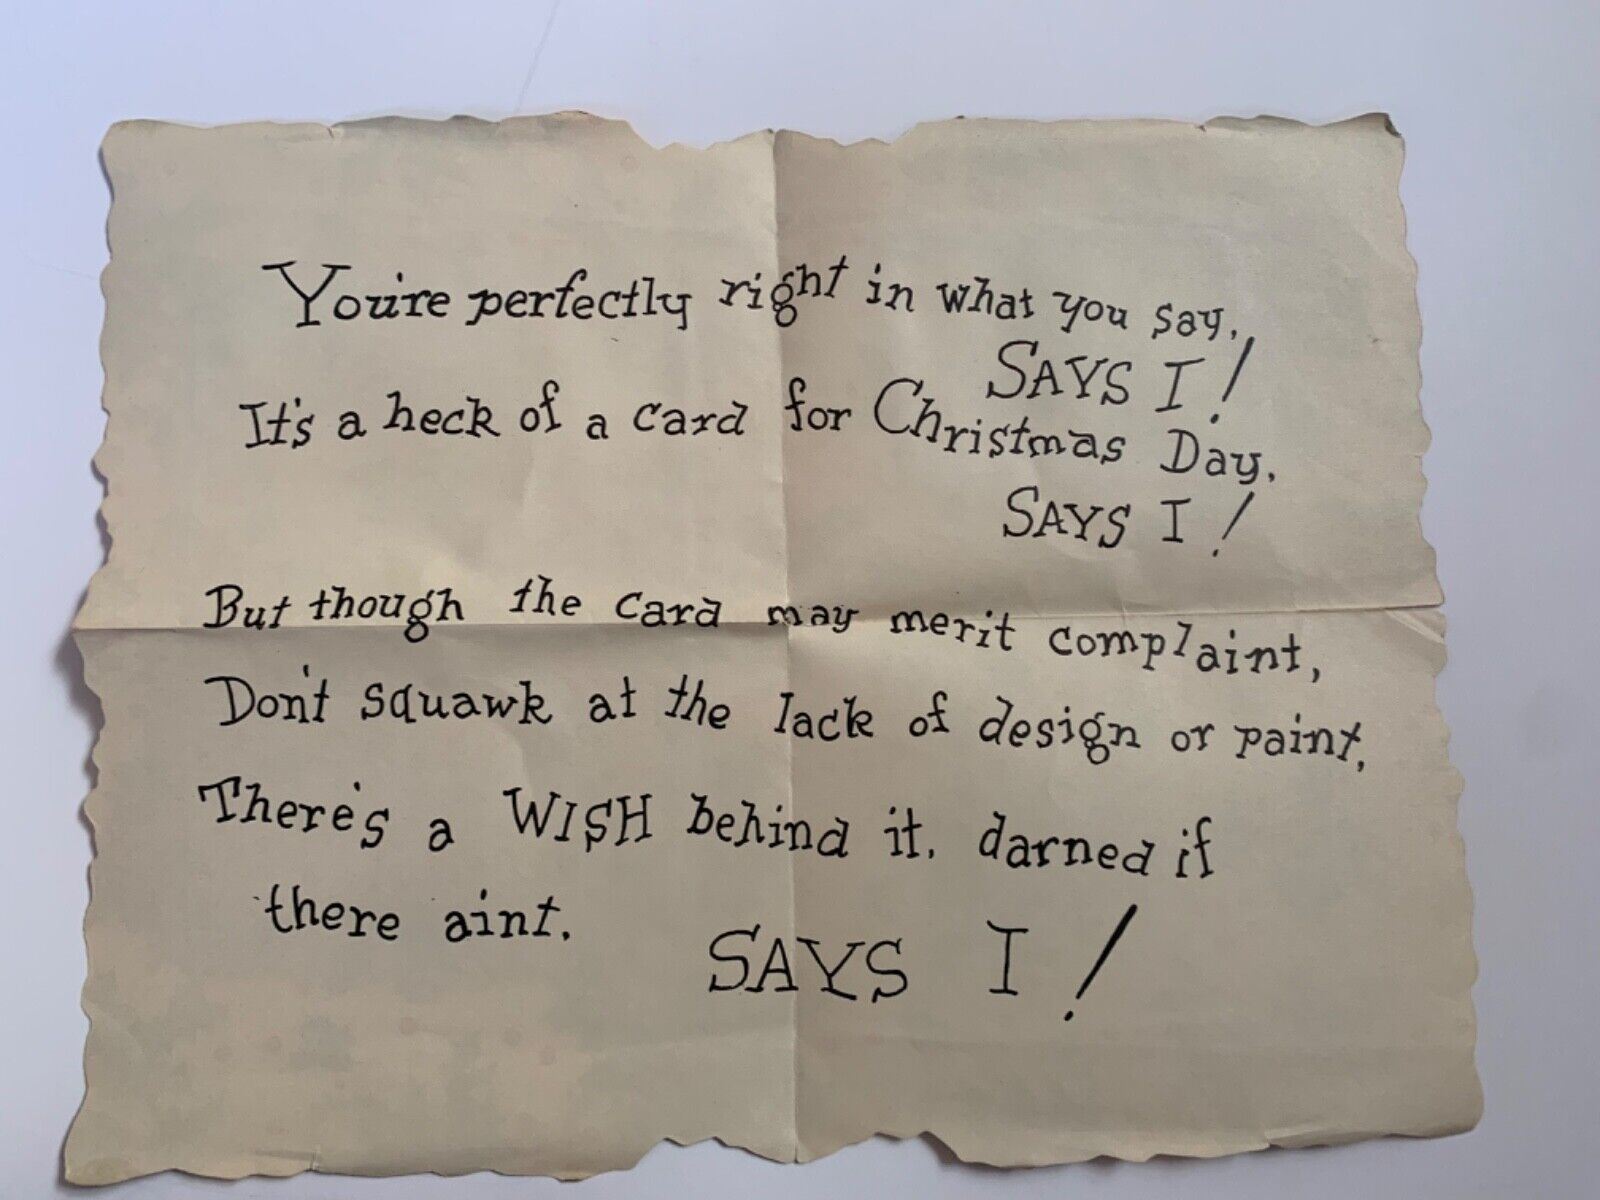 You're perfectly right in what you say,
SAYS I!
It's a heck of a card for Christmas Day,
SAYS I!
But though the card may merit complaint,
Don't squawk at the lack of design or paint,
There's a WISH behind it, darned if
there aint.
SAYS I!